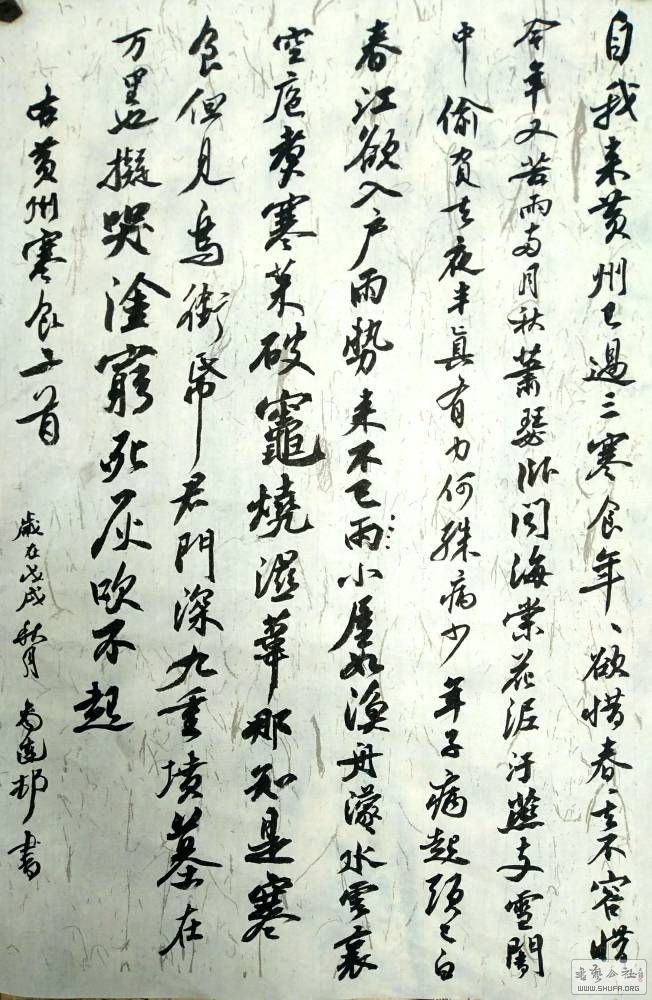 自我来黄州已過三寒食年、欲惜春、去不容惜
今年又苦雨两月秋蕭瑟卧闻海棠花泥汙燕支雪闇
中偷負去夜半真有力何殊病少年子病起頭已白
春江欲入户雨勢来不已雨小屋如漁舟濛水雲裏
空庖煮寒菜破竈燒濕葦那知是寒
食但见烏銜帋君門深九重墳墓在
万里也擬哭塗窮死灰吹不起
右黄州寒食二首
歲在戊戌秋月 書
书艺公社
WWW.SHUFA.ORG